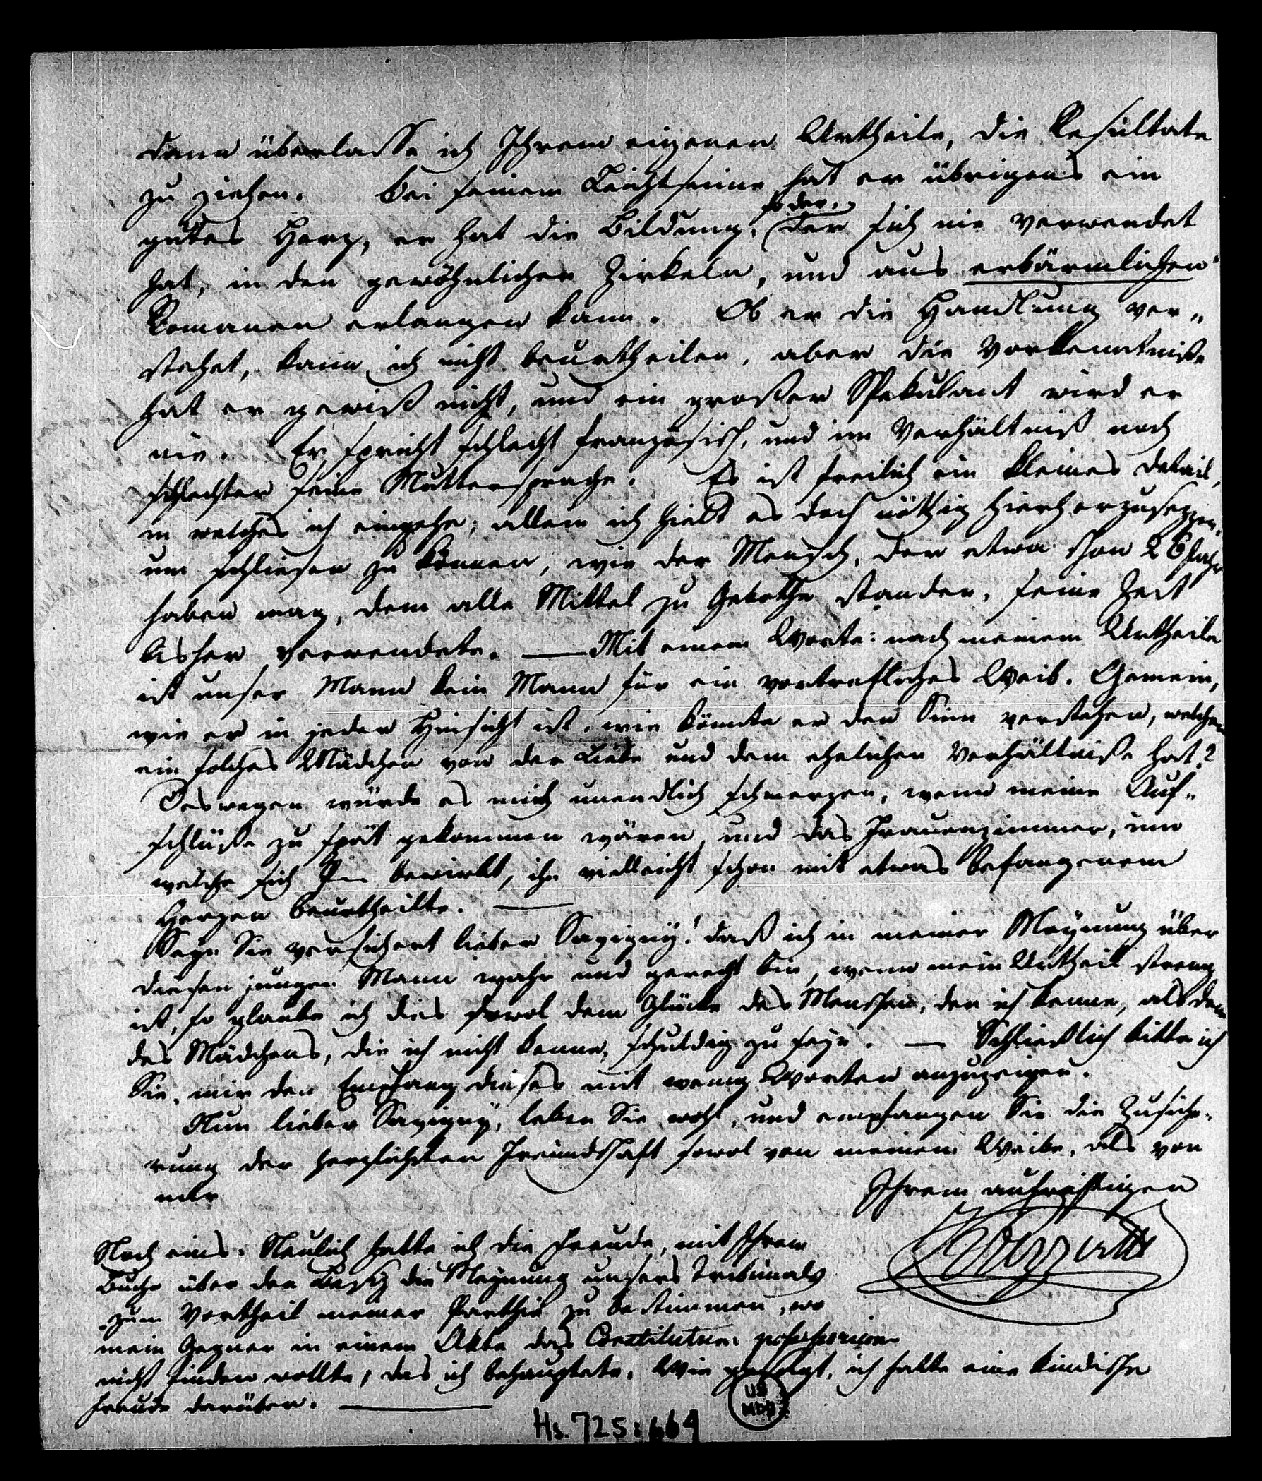 dann überlasse ich Ihrem eigenen Urtheile, die Resultate
zu ziehen. Bei seinem Leichtsinne hat er übrigens ein
gutes Herz, er hat die Bildung, so der, (der sich nie verwendet
hat, in den gewöhnlichen Zirkeln, und aus erbärmlichen
Romanen erlangen kann. Ob er die Handlung ver„
stehet, kann ich nicht beurtheilen, aber die Vorkenntniße
hat er gewiß nicht, und ein großer Spekulant wird er
nie. Er spricht schlecht französisch, und im Verhältniß noch
schlechter seine Muttersprache. Es ist freilich ein kleines Detail,
in welches ich eingehe, allein ich hielt es doch nöthig hierherzusezzen,
um schliesen zu können, wie der Mensch, der etwa schon 26 Jahr
haben mag, dem alle Mittel zu Gebothe standen, seine Zeit
bisher verwendete. — Mit einem Worte: nach meinem Urtheile
ist unser Mann kein Mann für ein vortrefliches Weib. Gemein,
wie er in jeder Hinsicht ist, wie könnte er den Sinn verstehen, welchen
ein solches Mädchen von der Liebe und dem ehelichen Verhältniße hat?
Deswegen würde es mich unendlich schmerzen, wenn meine Auf„
schlüße zu spät gekommen wären, und das Frauenzimmer, um
welche sich bewirbt, ihn vielleicht schon mit etwas befangenem
Herzen beurtheilte. —
Seyn Sie versichert lieber Savigny! daß ich in meiner Meynung über
diesen jungen Mann wahr und gerecht bin, wenn mein Urtheil streng
ist, so glaube ich dies sowol dem Glücke des Menschen, den ich kenne, als dem
des Mädchens, die ich nicht kenne, schuldig zu seyn. — Schließlich bitte ich
Sie, mir den Empfang dieses mit wenig Worten anzuzeigen.
Nun lieber Savigny, leben Sie wohl, und empfangen Sie die Zusiche„
rung der herzlichsten Freundschaft sowol von meinem Weibe, als von
mir
Ihrem aufrichtigen
Noch eins. Neulich hatte ich die Freude, mit Ihrem
Buche über den Besitz die Meynung unsers Tribunals
zum Vortheil meiner Parthie zu bestimmen, wo
mein Gegner in einem Akte das Constitutum possessorium
nicht finden wollte, das ich behauptete. Wie gesagt, ich hatte eine kindische
Freude darüber. —
Hs. 725:664
UB